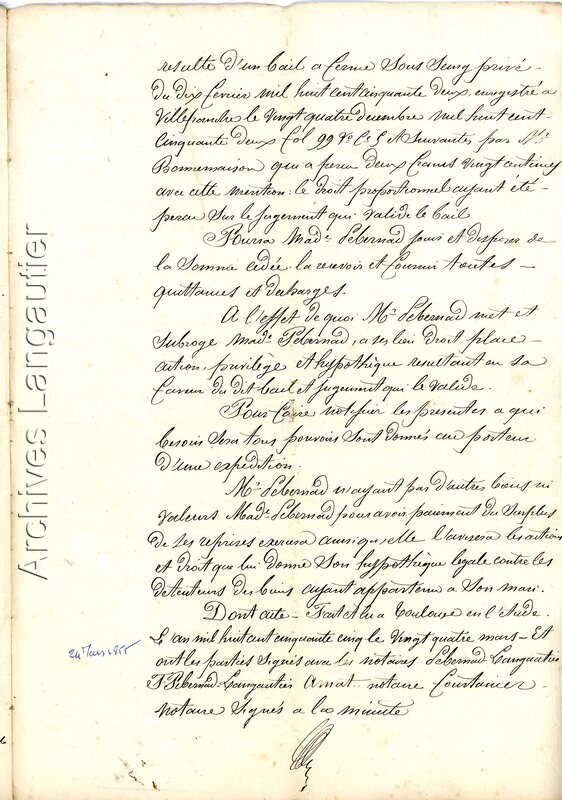 resulte d'un bail a ferme Sous Seing privé
du dix fevrier mil huit cent cinquante deux, enregistré a
Villefranche le vingt quatre decembre mil huit cent
Cinquante deux fol 99 Vo Cs 5 et Suivantes par Mr
Bonnemaison qui a percu deux francs vingt centimes
avec cette mention: le droit proportionnel ayant été
percu Sur le jugement qui valide le bail
Pourra Made Pebernad jouir et disposer de
la Somme cédée. la recevoir et fournir toutes
quittances et decharges.
A l'effet de quoi Mr Pebernad met et
Subroge Made Pebernad, a ses lieu droit place
action, privilège et hypothèque resultant en sa
faveur du dit bail et jugement qui le valide.
Pour faire notifier les presentes a qui
besoin Sera tous pouvoirs Sont donnés au porteur
d'une expedition.
Mr Pebernad n'ayant pas d'autres biens ni
valeurs Made Pebernad pour avoir paiement du Surplus
de Ses reprises exercera ainsi qu'elle l'avisera les actions
et droit que lui donne Son hypothèque legale contre les
detenteurs des biens ayant appartenu a Son mari.
Dont acte - Fait et lu a Toulouse en l'Etude.
L'an mil huit cent cinquante cinq le vingt quatre mars - Et
24 Mars 1855
ont les parties Signés avec les notaires Pebernad Langautier
F. Pebernad. Langautier Amat. notaire Courtanier
notaire Signés a la minute
Archives Langautier